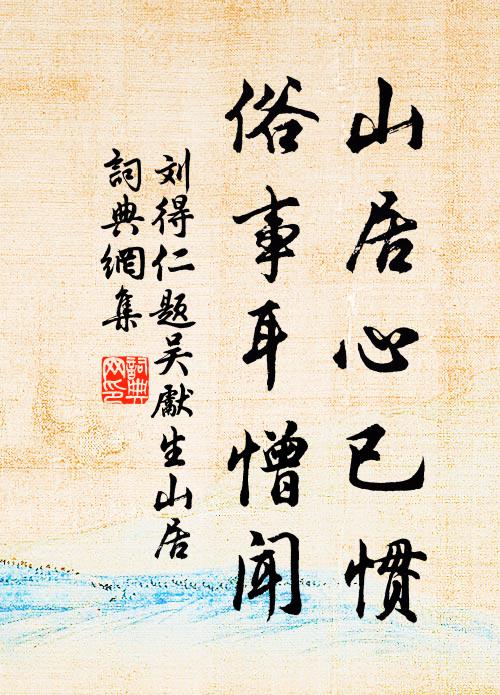 山居心已惯
俗事耳憎闻
刘得仁题吴献生山居
詞典網集
詞典网印